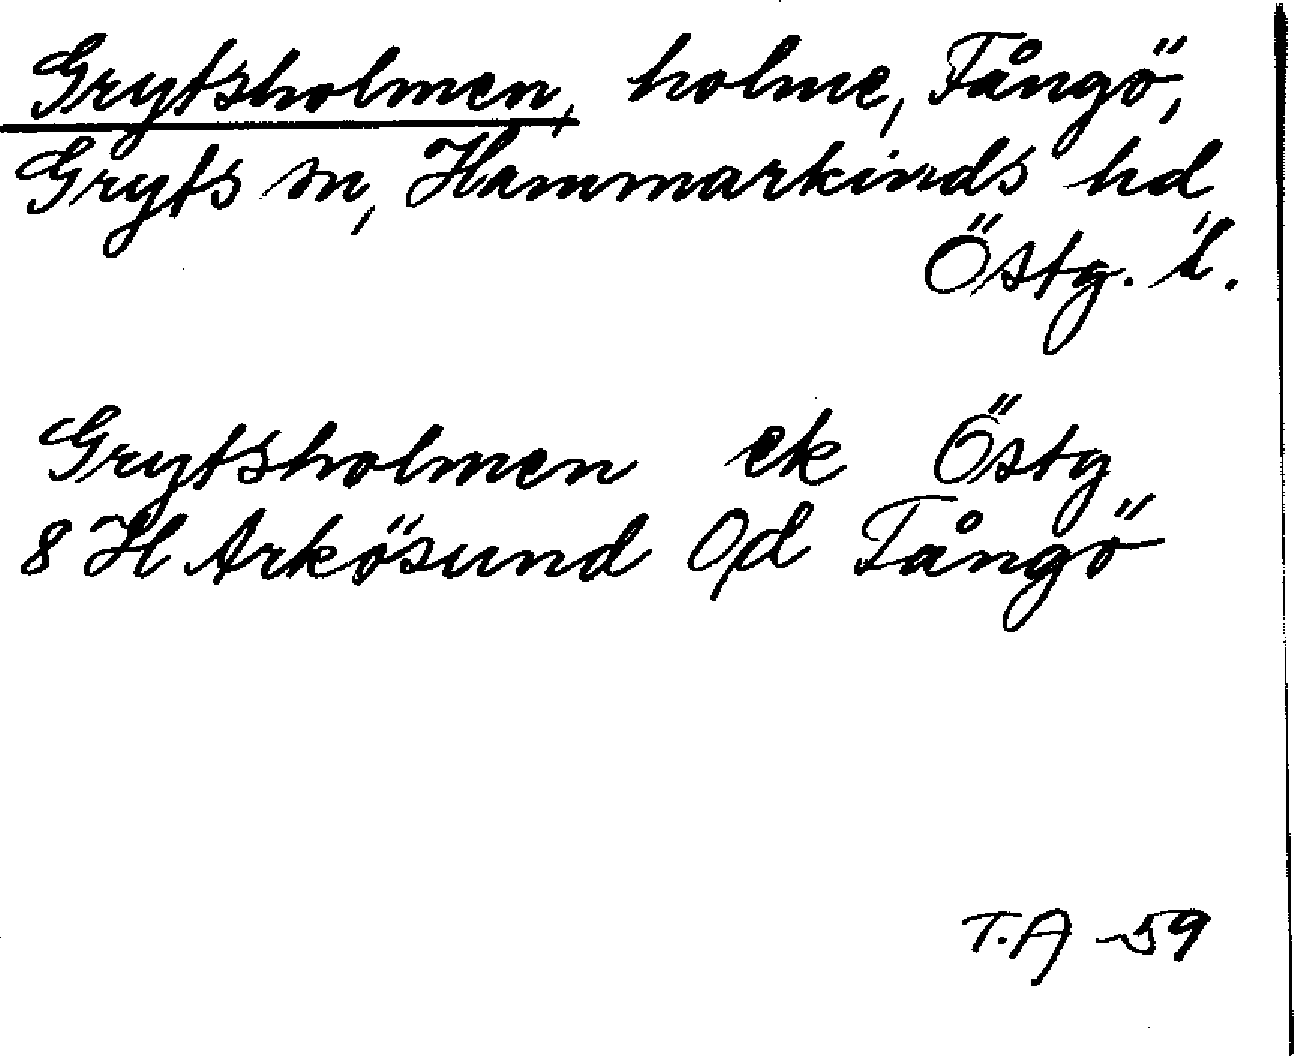 Grytsholmen, holme, Fångö,
Gryts sn, Hammarkinds hd,
Östg. l.
Grytsholmen ek Östg
8 H Arkösund Od Fångö
T.A -59